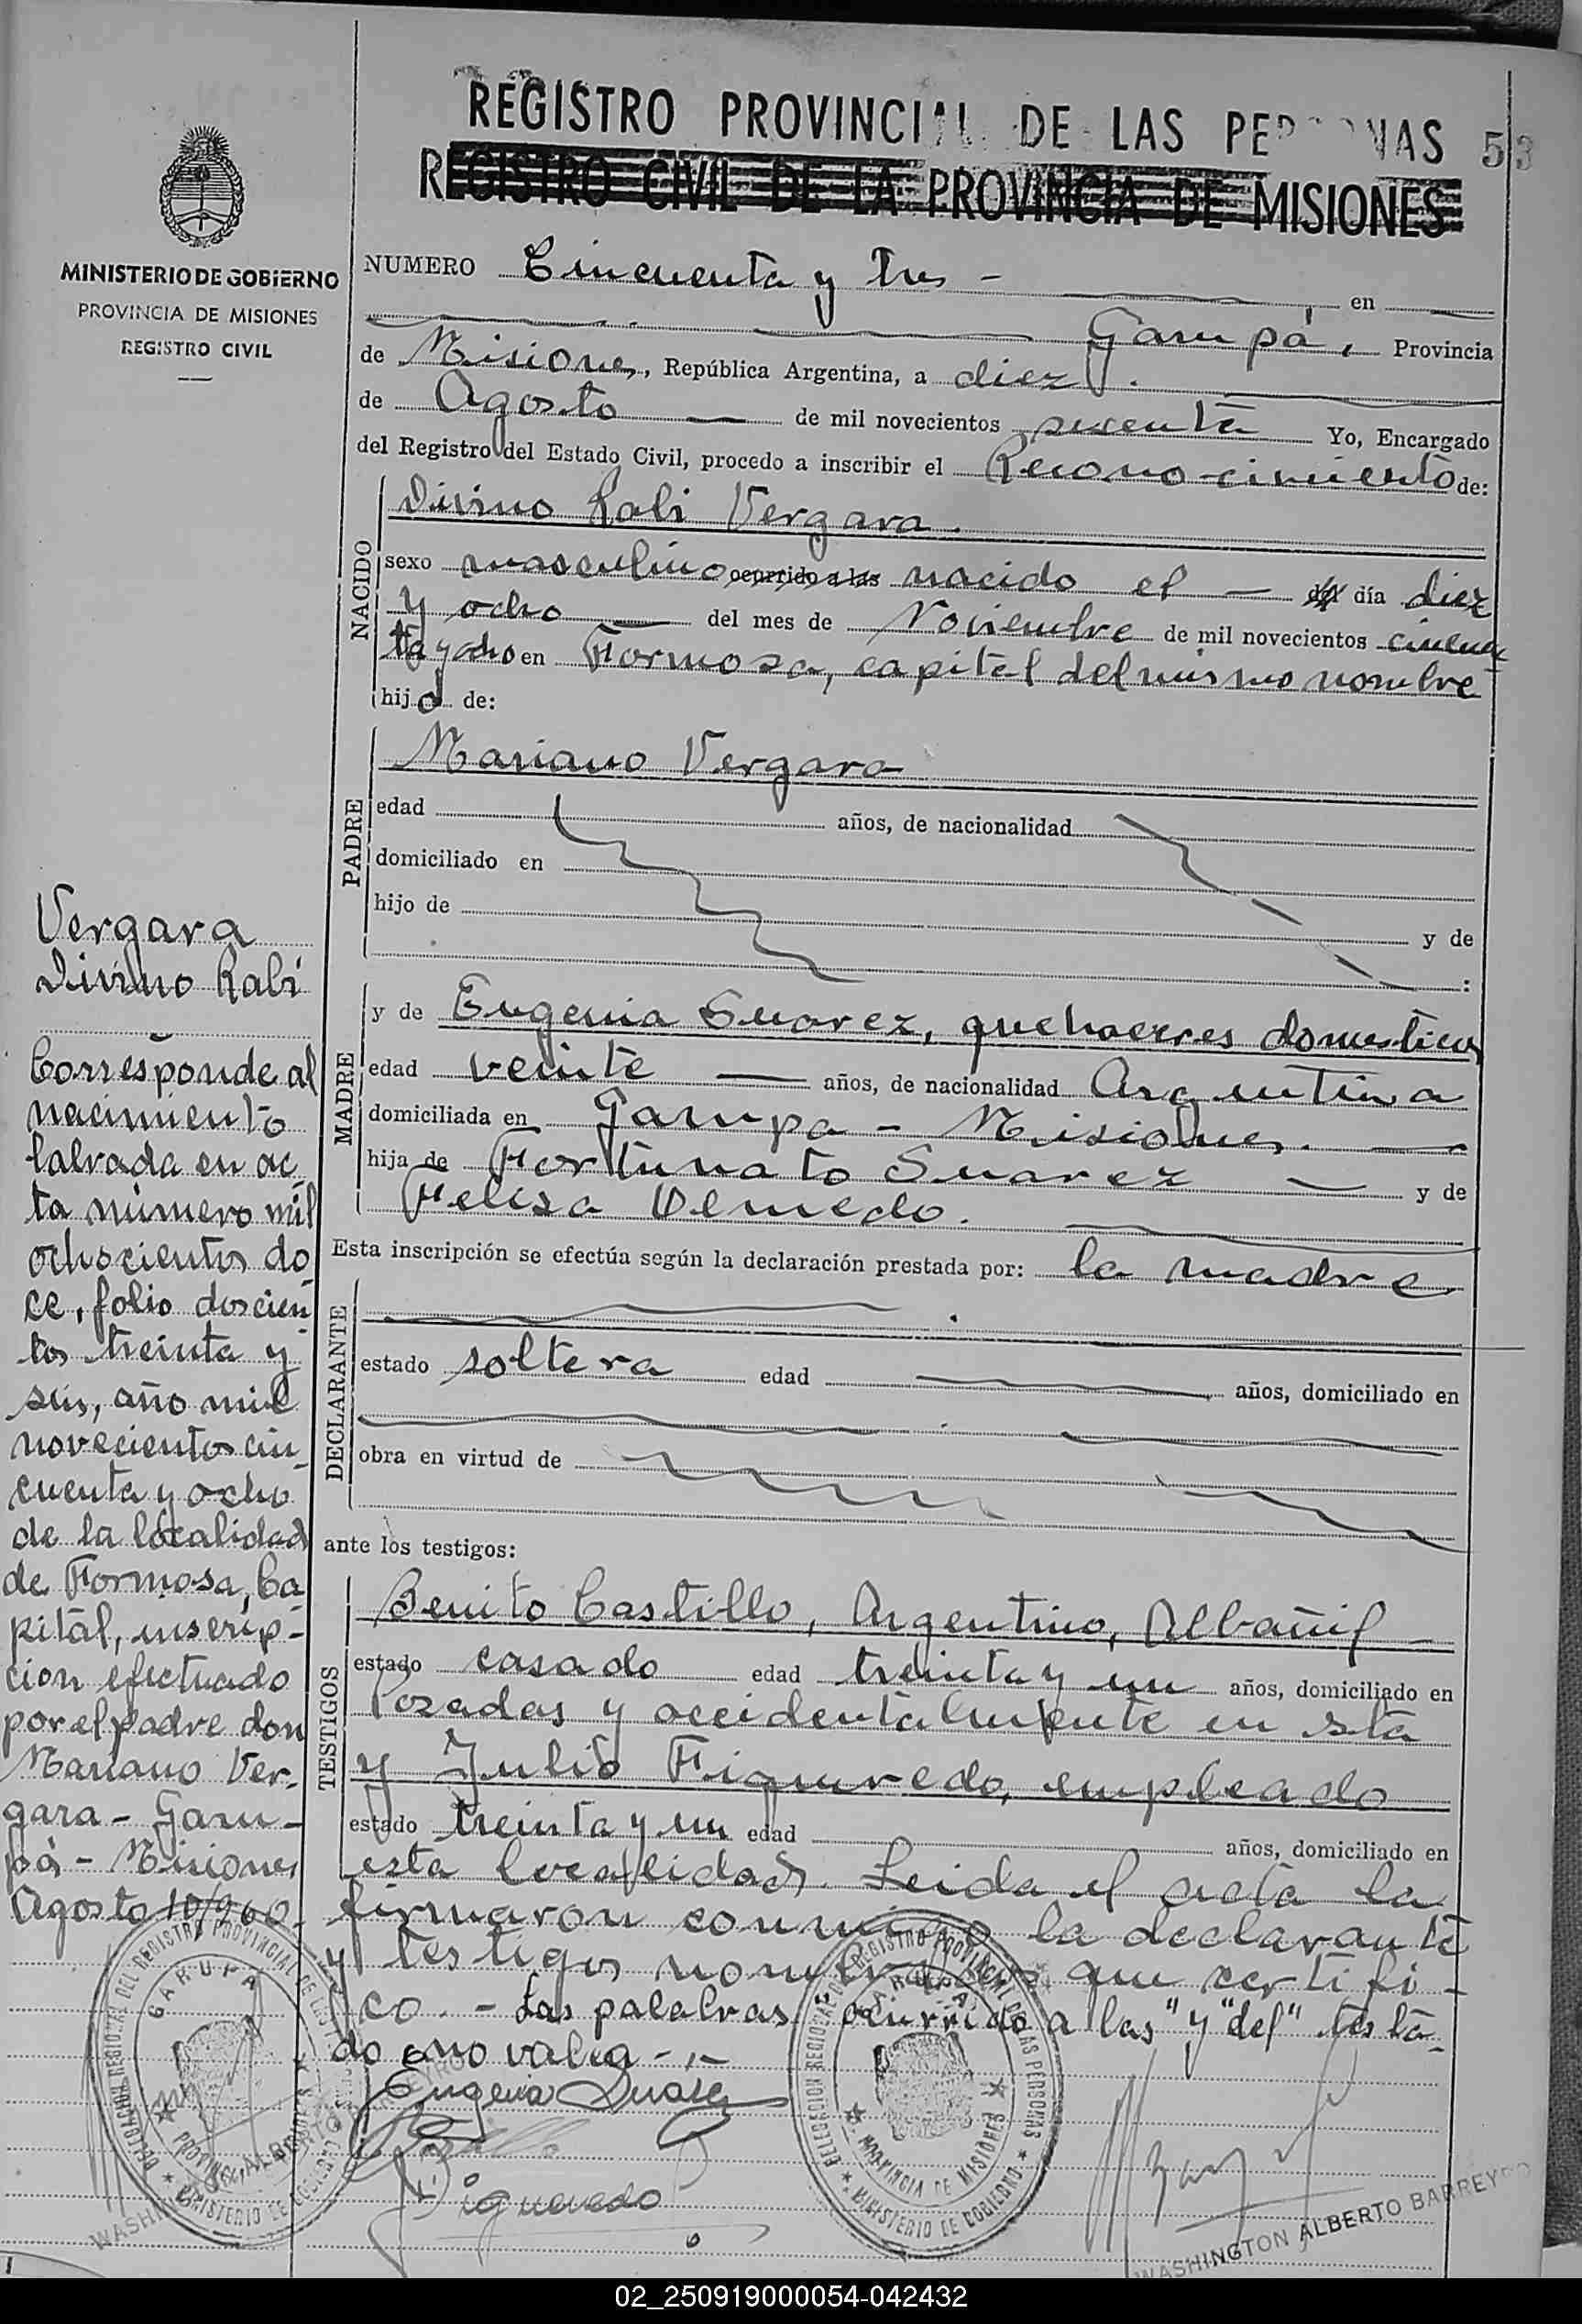 REGISTRO PROVINCIAL DE LAS PERSONAS 53
REGISTRO CIVIL DE LA PROVINCIA DE MISIONES
MINISTERIO DE GOBIERNO
PROVINCIA DE MISIONES
REGISTRO CIVIL
NUMERO Cincuenta y tres - en
Garupá, Provincia
de Misiones, República Argentina, a diez
de Agosto de mil novecientos sesenta Yo, Encargado
del Registro del Estado Civil, procedo a inscribir el Recono-cimiento de:
NACIDO
Divino Rabi Vergara.
sexo masculino ocurrido a las nacido el — del día diez
y ocho — del mes de Noviembre de mil novecientos cincuen
ta y ocho en Formosa, capital del mismo nombre
hijo de:
PADRE
Mariano Vergara
edad años, de nacionalidad
domiciliado en
hijo de
y de
:
MADRE
y de Eugenia Suarez, quehaceres domesticos
edad veinte — años, de nacionalidad Argentina
domiciliada en Garupa - Misiones. —
hija de Fortunato Suarez — y de
Felisa Olmedo.
Esta inscripción se efectúa según la declaración prestada por: la madre
DECLARANTE
estado soltera edad años, domiciliado en
obra en virtud de
ante los testigos:
TESTIGOS
Benito Castillo, Argentino, Albañil -
estado casado edad treinta y un años, domiciliado en
Pozadas y accidentalmente en esta
y Julio Figueredo, empleado
estado treinta y un edad años, domiciliado en
esta localidad. Leida el acta la
firmaron conmigo la declarante
y testigos nombrados que certifi-
co. - Las palabras "ocurrido a las" y "del" testa-
do no valen -,-
Eugenia Suarez
Figueredo
WASHINGTON ALBERTO BARREYRO
Vergara
Divino Rabi
Corresponde al
nacimiento
labrada en ac
ta número mil
ochocientos do
ce, folio doscien
tos treinta y
seis, año mil
novecientos cin
cuenta y ocho
de la localidad
de Formosa, Ca
pital, inscrip-
cion efectuado
por el padre don
Mariano Ver-
gara - Garu-
pá - Misiones
Agosto 10/960.
DELEGACION REGIONAL DEL REGISTRO PROVINCIAL DE LAS PERSONAS
GARUPA
PROVINCIA DE MISIONES
MINISTERIO DE GOBIERNO
DELEGACION REGIONAL DEL REGISTRO PROVINCIAL DE LAS PERSONAS
GARUPA
PROVINCIA DE MISIONES
MINISTERIO DE GOBIERNO
02_250919000054-042432